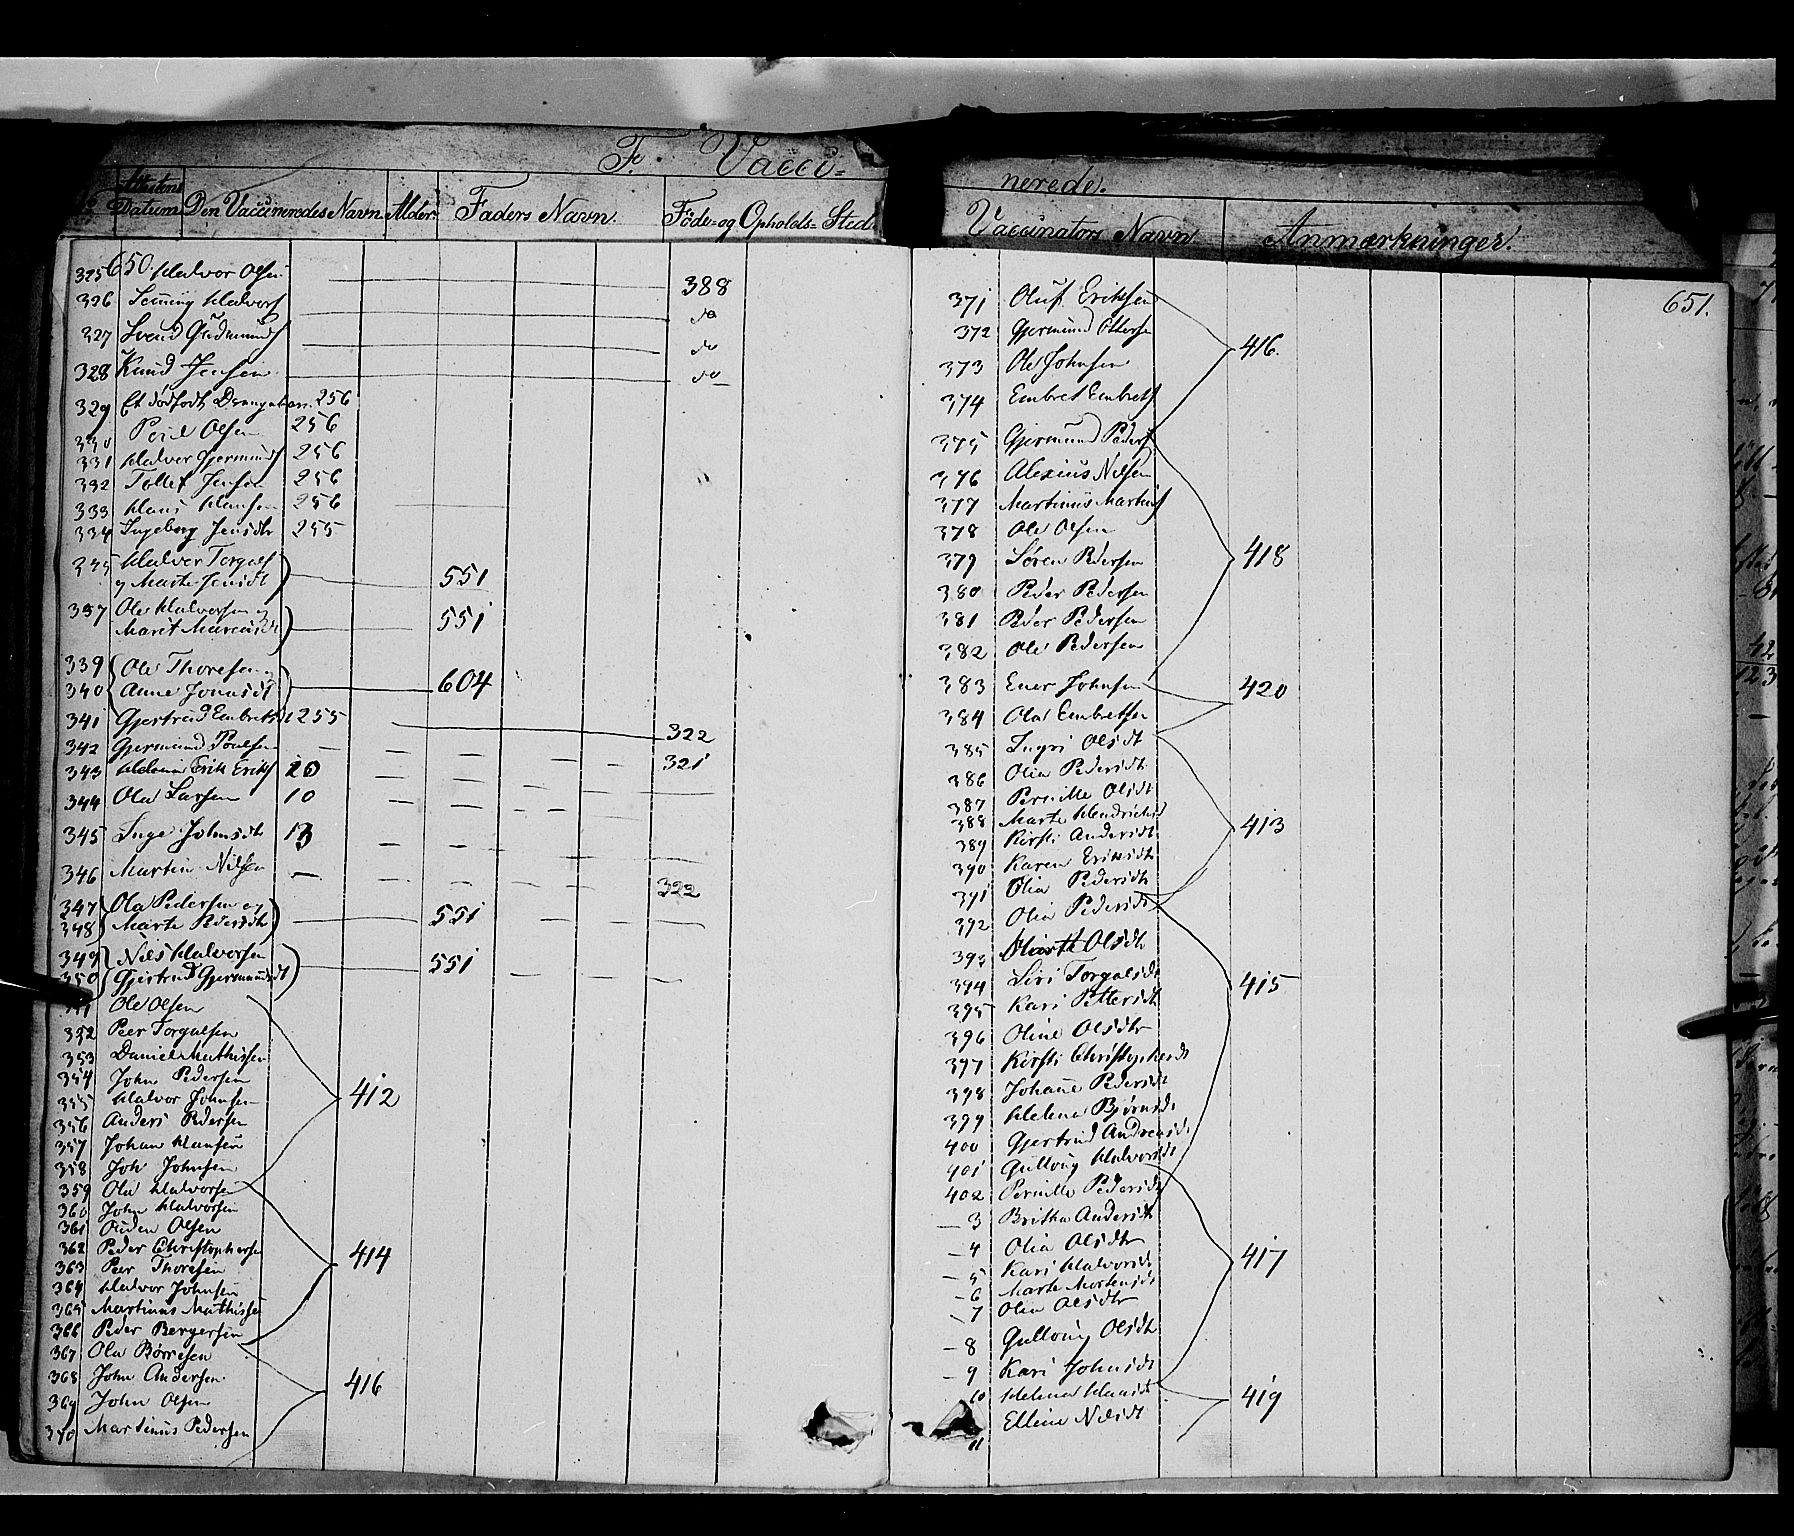 F. Vacci-
Attestens
Datum Den Vaccineredes Navn. Alder. Faders Navn. Føde- og Opholds-Sted
650.
325 Halvor Olsen 388
326 Halvors do
327 Svend Gudmunds do
328 Knud Jensen do
329 Et dødfødt Drengebarn 256
330 Poul Olsen 256
331 Halvor Gjermunds 256
332 Tollef Jensen 256
333 Hans Hansen 256
334 Ingeborg Jensdtr 255
335 Halvor Torgals
og Marte Jensdt 551
337 Ole Halvorsen og
Marit 551
339 Ole Thoresen
340 Anne Jonsdt 604
341 Gjertrud Embretsd 255
342 Gjermund Poulsen 322
343 Erik Eriks 20 321
344 Ola Larsen 10
345 Inge Johnsdtr 13
346 Martin Nilsen 322
347 Ola Pedersen og
348 Marte Pedersdtr 551
349 Nils Halvorsen
350 Gjertrud Gjermundsdt 551
Ole Olsen
352 Peer Torgalsen
353 Daniel Mathissen
354 John Pedersen
355 Halvor Johnsen 412
356 Anders Pedersen
357 Johan Hansen
358 Joh Johnsen
359 Ole Halvorsen
360 John Halvorsen
361 Olsen
362 Peder Christophersen
363 Peer Thoresen 414
364 Halvor Johnsen
365 Martinus Mathissen
366 Peder Bergersen
367 Ola Børresen
368 John Andersen
369 John Olsen 416
370 Martinus Pedersen
nerede.
Vaccinators Navn. Anmærkninger.
651.
371 Oluf Eriksen
372 Gjermund Ottersen
373 Ole Johnsen 416.
374 Embret Embrets
375 Gjermund Peders
376 Alexius Nilsen
377 Martinus Martins
378 Ole Olsen
379 Søren Pedersen 418
380 Peder Pedersen
381 Peder Pedersen
382 Ole Pedersen
383 Ener Johnsen 420
384 Ola Embretsen
385 Ingri Olsdt
386 Olia Pedersdt
387 Pernille Olsdt
388 Marte Hendriksd 413
389 Kirsti Andersdt
390 Karen Eriksdt
391 Olia Pedersdt
392 Olia Pedersdt
393 Marte Olsdt
394 Siri Torgalsdt 415
395 Kari Pettersdt
396 Oline Olsdtr
397 Kirsti Christophersd
398 Johane Pedersdt
399 Helena Bjørnsdt
400 Gjertrud Andreasdt
401 Gulloug Halvorsdt
402 Pernille Pedersdt
— 3 Britha Andersdt
— 4 Olia Olsdtr
— 5 Kari Halvorsdt 417
— 6 Marte Mortensdt
— 7 Olia Olsdtr
— 8 Gulloug Olsdt
— 9 Kari Johnsdt
10 Helena Hansdt 419
11 Ellene Nilsdt